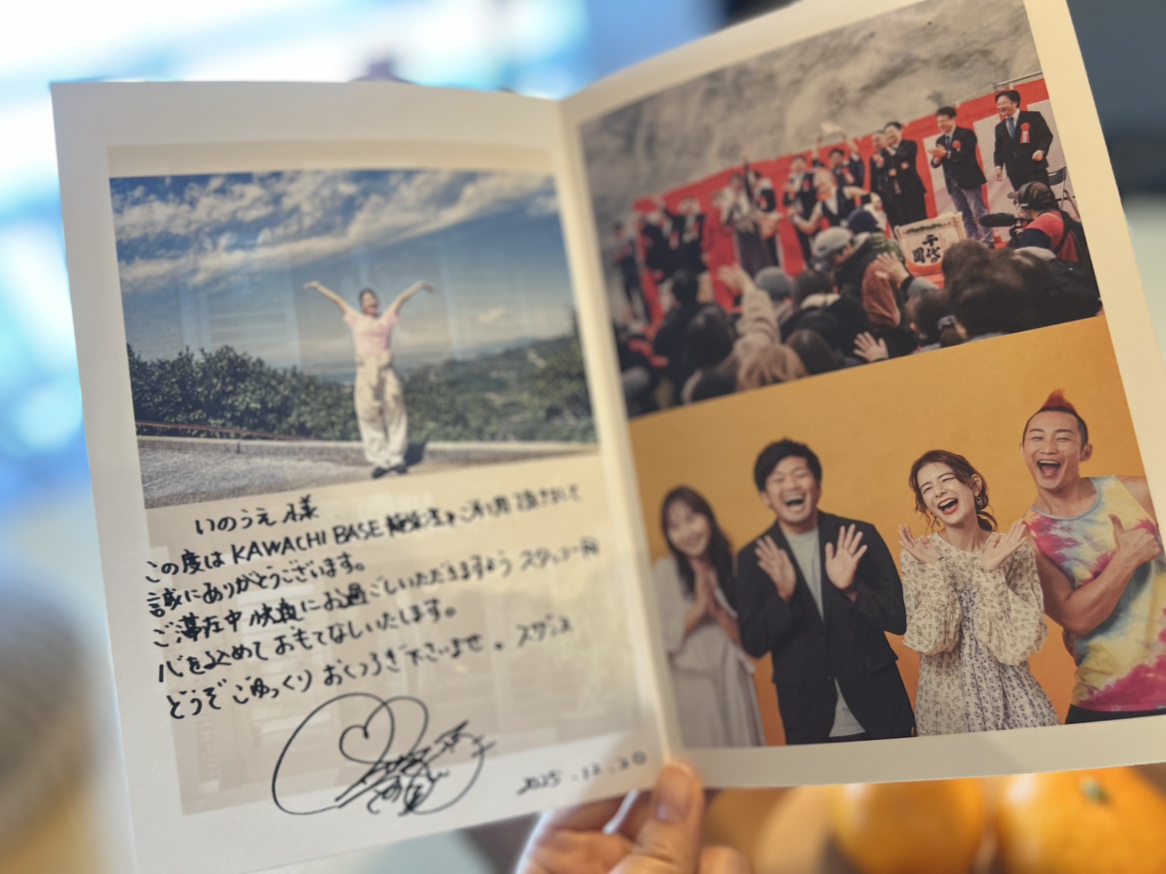 いのうえ様
この度は KAWACHI BASE 龍臥洞をご利用頂きまして
誠にありがとうございます。
ご滞在中 快適にお過ごしいただきますよう スタッフ一同
心を込めておもてなしいたします。
どうぞ ごゆっくり おくつろぎ下さいませ。
2025.12.20
千代